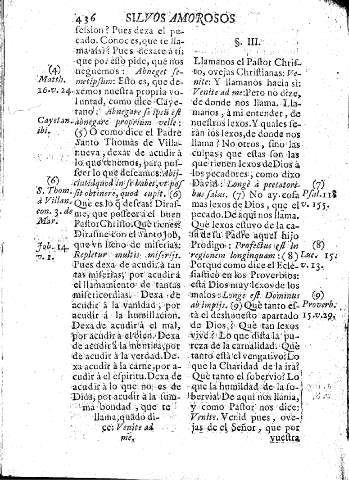 436 SILVOS AMOROSOS
session? Pues dexa el pe-
cado. Conoces, que te lla-
ma assi? Pues dexate à ti:
que por esso pide, que nos
neguemos: Abneget se-
metipsum: Esto es, que de-
xemos nuestra propria vo-
luntad, como dice Caye-
tano: Abnegare se ipsū est
abnegare proprium velle:
(5) O como dice el Padre
Santo Thomàs de Villa-
nueva, dexar de acudir à
lo que tenemos, para pos-
seer lo que deseamos: Abij-
ciat quod in se habet, ut pos-
sit obtinere, quod cupit. (6)
Què es lo q̃ deseas? Diràs-
me, que posseer à el buen
Pastor Christo. Què tienes?
Diràsme con el Santo Job,
que un lleno de miserias:
Repletur multis miserijs.
Pues dexa de acudir à tan-
tas miserias, por acudir à
el llamamiento de tantas
misericordias. Dexa de
acudir à la vanidad, por
acudir à la humillacion.
Dexa de acudir à el mal,
por acudir a el bien. Dexa
de acudir à la mentira, por
acudir à la verdad. Dexa
de acudir à la carne, por a-
cudir à el espiritu. Dexa de
acudir à lo que no es de
Dios, por acudir à la suma
bondad, que te
llama, quando di-
ce: Venite ad
me,
(4)
Matth.
16. v. 24.
Cayetan.
ibi.
(6)
S. Thom.
à Villan.
con. 3. de
Mar.
Job. 14.
v. 1.
§. III.
Llamanos el Pastor Chris-
to, ovejas Christianas: Ve-
nite: Y llamanos hacia si:
Venite ad me: Pero no dize,
de donde nos llama. Lla-
manos, à mi entender, de
nuestros lexos. Y quales se-
ràn los lexos, de donde nos
llama? No otros, sino las
culpas; que estas son las
que tienen lexos de Dios à
los pecadores; como dixo
David: Longè à peccatori-
bus salus. (7) No ay cosa
mas lexos de Dios, que el
pecado. De aqui nos llama.
Què lexos estuvo de la ca-
sa de su Padre aquel hijo
Prodigo: Profectus est in
regionem longinquam: (8)
Porquè como dice el Ecle-
siastico en los Proverbios:
està Dios muy lexos de los
malos: Longe est Dominus
ab impijs. (9) Què tanto es-
tà el deshonesto apartado
de Dios,? Què tan lexos
vive? Lo que dista la pu-
reza de la carnalidad. Què
tanto està el vengativo? Lo
que la Charidad de la ira?
Què tanto el sobervio? Lo
que la humildad de la so-
bervia! De aqui nos llama,
y como Pastor nos dice:
Venite. Venid pues, ove-
jas de el Señor, que por
vuestra
(7)
Psal. 118
v. 155.
(8)
Luc. 15.
v. 13.
(9)
Proverb.
15. v. 29.